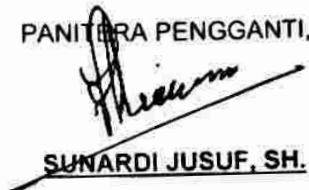 PANITERA PENGGANTI,
SUNARDI JUSUF, SH.